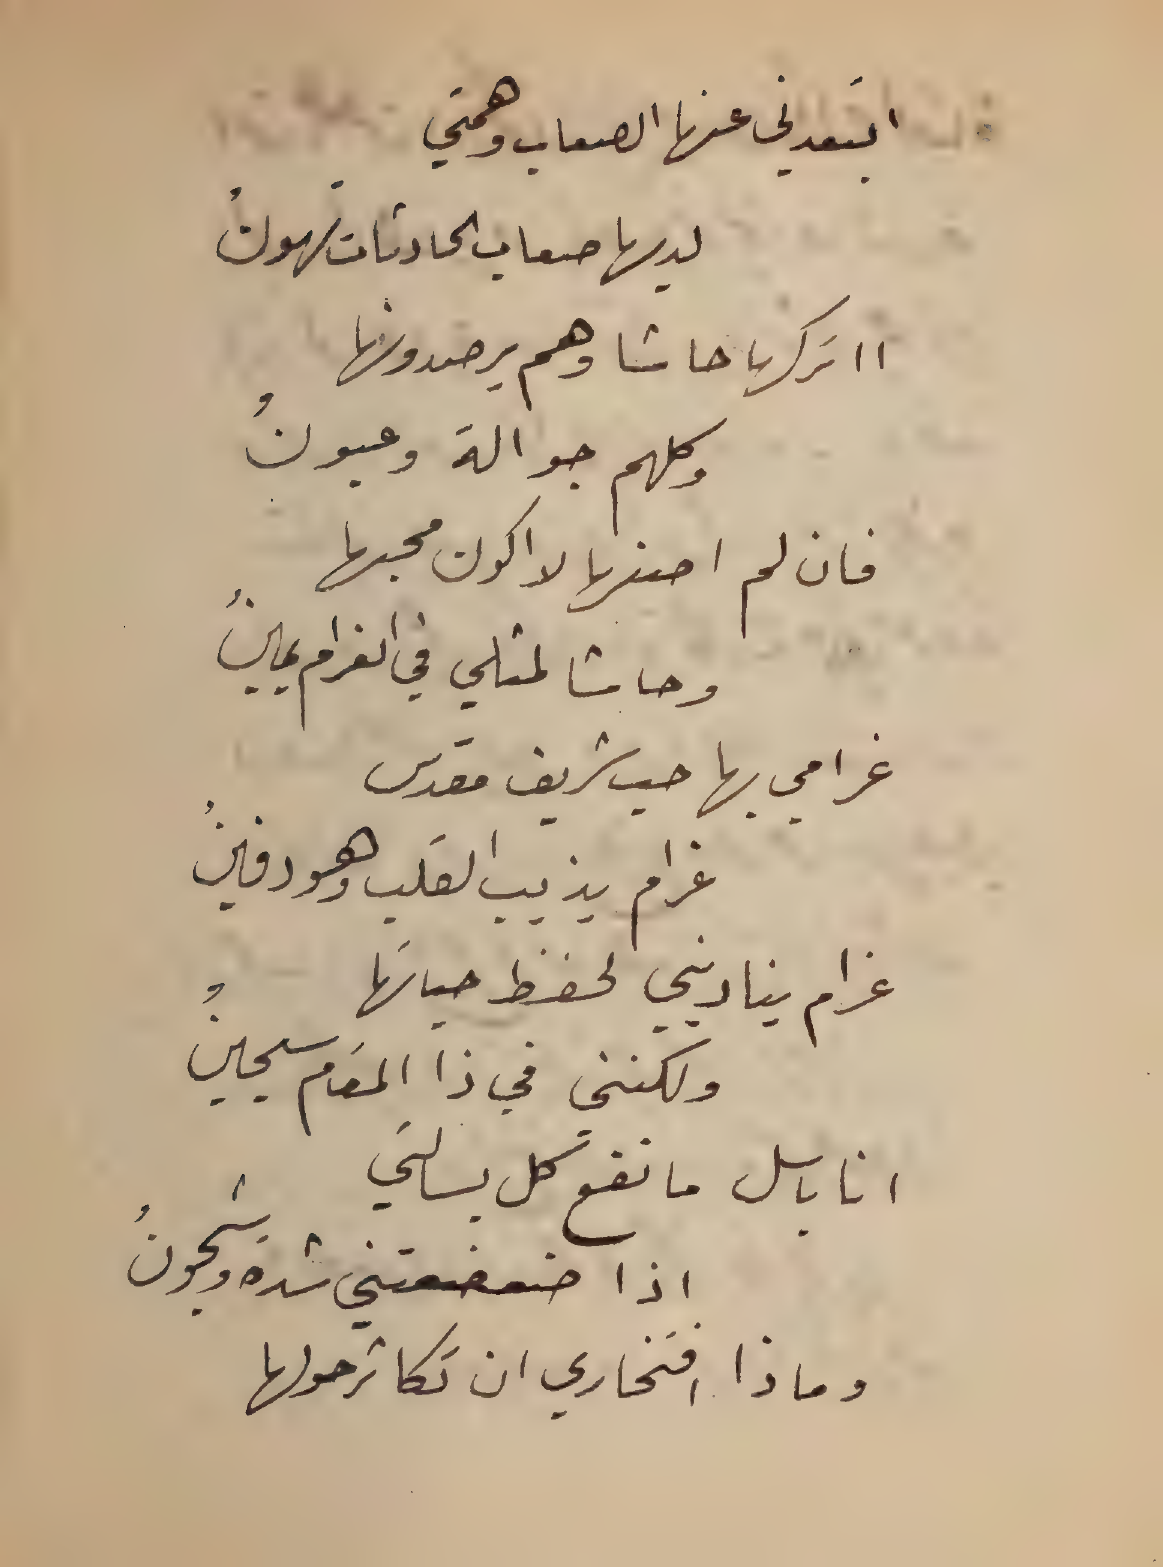 اتبعدني عنها الصعاب وهمتي
لديها صعاب الحادثات تهونُ
ااتركها حاشا وهم يرصدونها
وكلهم جوالة وعيونُ
فان لم اصنها لا اكون محبها
وحاشا لمثلي في الغرام يمينُ
غرامي بها حب شريف مقدس
غرام يذيب القلب وهو دفينُ
غرام يناديني لحفظ حياتها
ولكنني في ذا المقام سجينُ
انا باسل ما نفع كل بسالتي
اذا ضعضعتني شدة وشجونُ
وماذا افتخاري ان تكاثر حولها